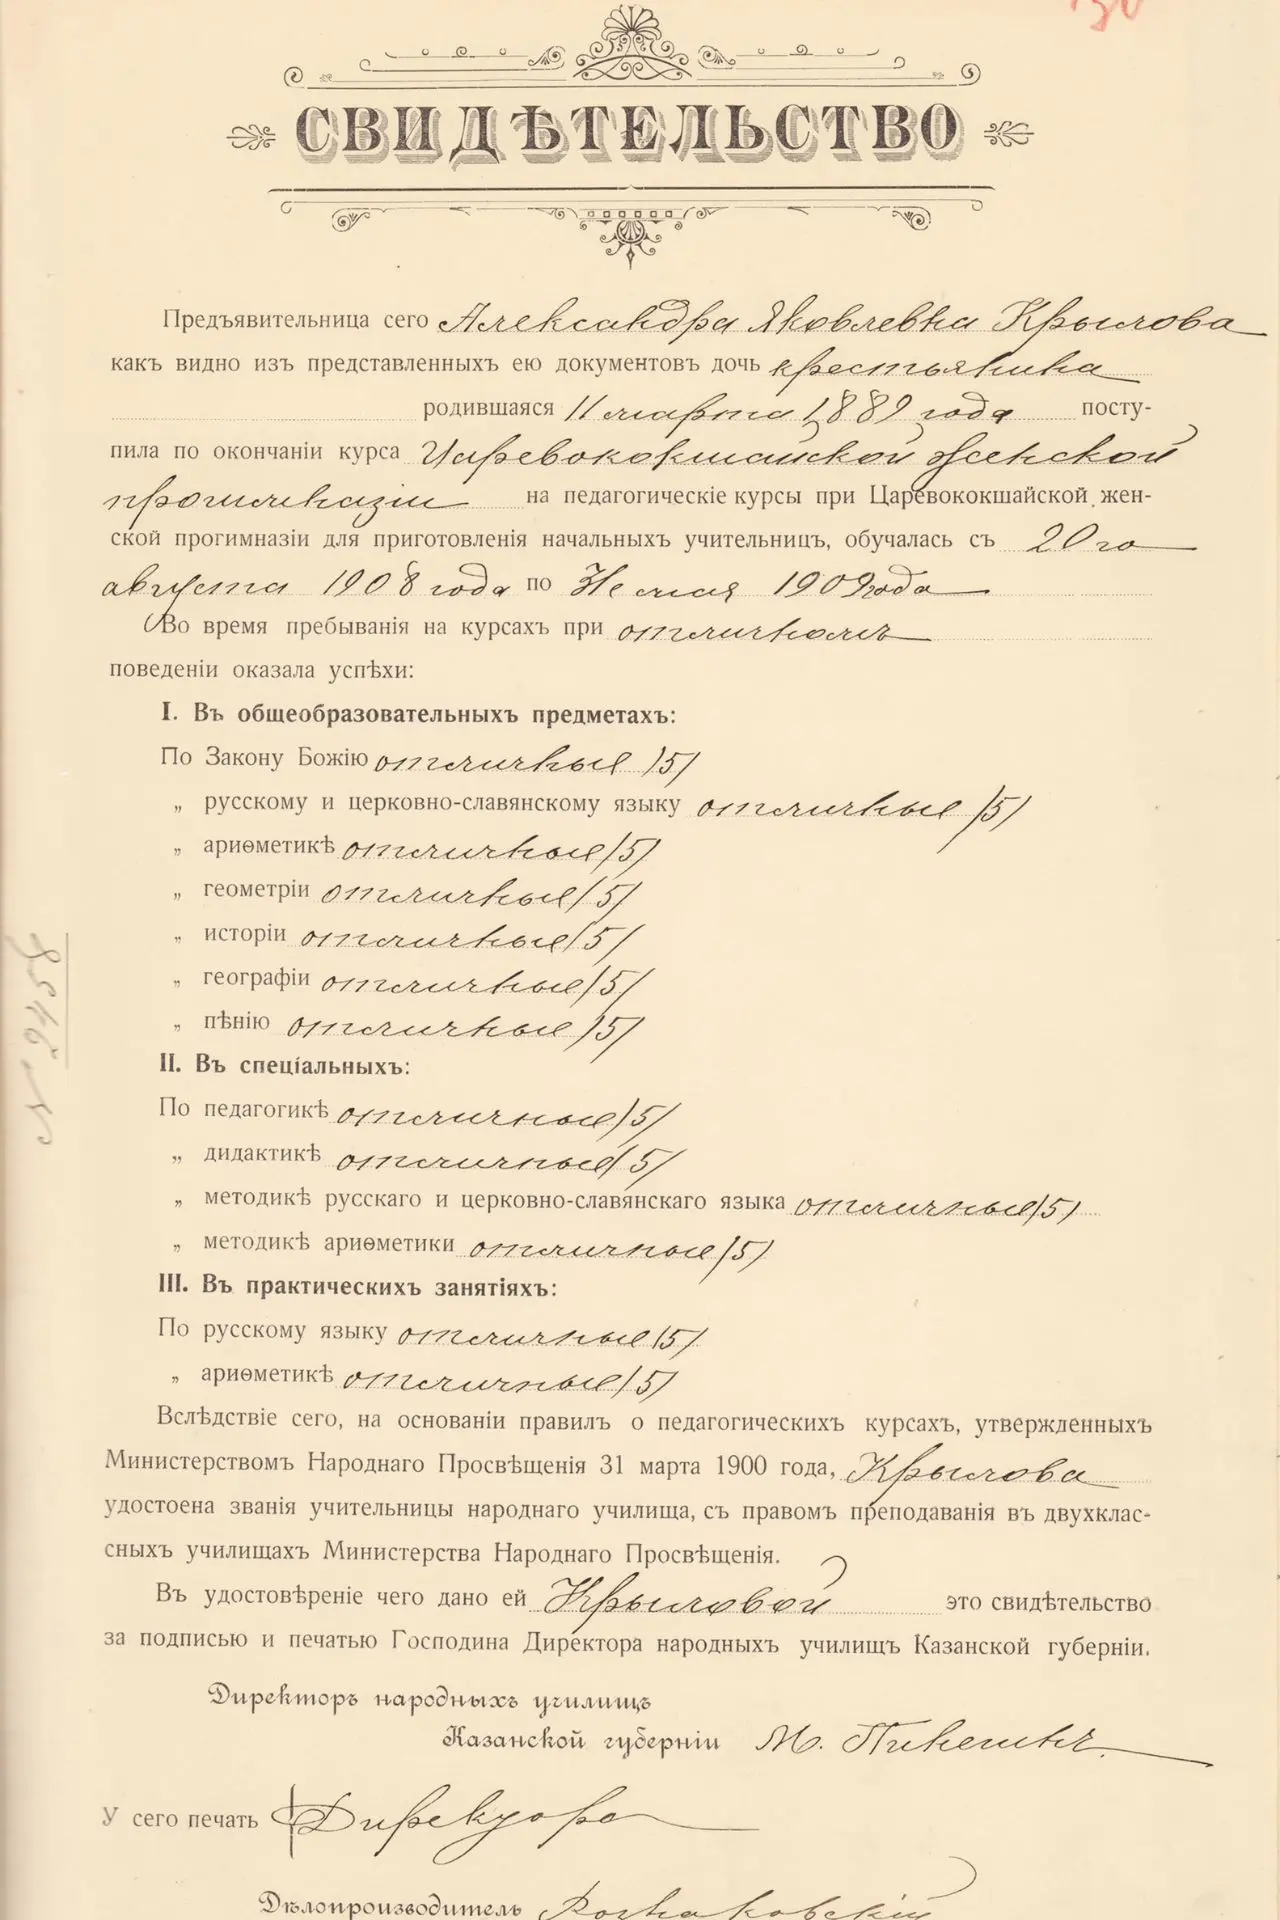 30
СВИДѢТЕЛЬСТВО
Предъявительница сего Александра Яковлевна Крылова
какъ видно изъ представленныхъ ею документовъ дочь крестьянина
родившаяся 11 марта 1889 года посту-
пила по окончаніи курса Царевококшайской женской
прогимназіи на педагогическіе курсы при Царевококшайской жен-
ской прогимназіи для приготовленія начальныхъ учительницъ, обучалась съ 20го
августа 1908 года по мая 1909 года
Во время пребыванія на курсахъ при отличномъ
поведеніи оказала успѣхи:
I. Въ общеобразовательныхъ предметахъ:
По Закону Божію отличные /5/
„ русскому и церковно-славянскому языку отличные /5/
„ ариѳметикѣ отличные /5/
„ геометріи отличные /5/
„ исторіи отличные /5/
„ географіи отличные /5/
„ пѣнію отличные /5/
II. Въ спеціальныхъ:
По педагогикѣ отличные /5/
„ дидактикѣ отличные /5/
„ методикѣ русскаго и церковно-славянскаго языка отличные /5/
„ методикѣ ариѳметики отличные /5/
III. Въ практическихъ занятіяхъ:
По русскому языку отличные /5/
„ ариѳметикѣ отличные /5/
Вслѣдствіе сего, на основаніи правилъ о педагогическихъ курсахъ, утвержденныхъ
Министерствомъ Народнаго Просвѣщенія 31 марта 1900 года, Крылова
удостоена званія учительницы народнаго училища, съ правомъ преподаванія въ двухклас-
сныхъ училищахъ Министерства Народнаго Просвѣщенія.
Въ удостовѣреніе чего дано ей Крыловой это свидѣтельство
за подписью и печатью Господина Директора народныхъ училищъ Казанской губерніи.
Директоръ народныхъ училищъ
Казанской губерніи М. Пинегинъ
У сего печать Директора
Дѣлопроизводитель
№ 2458